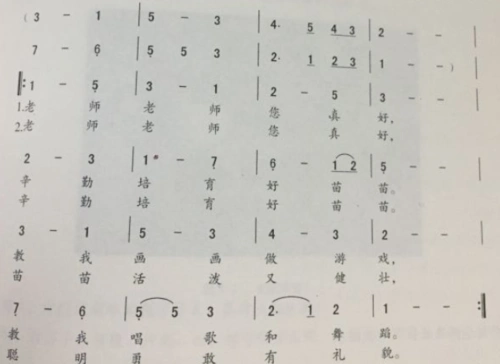 ( 3 - 1 | 5 - 3 | 4· 5 4 3 | 2 - - |
7 - 6 | 5 5 3 | 2· 1 2 3 | 1 - - ) |
‖: 1 - 5 | 3 - 1 | 2 - 5 | 3 - - |
1.老 师 老 师 您 真 好,
2.老 师 老 师 您 真 好,
2 - 3 | 1 - 7 | 6 - 1 2 | 5 - - |
辛 勤 培 育 好 苗 苗。
辛 勤 培 育 好 苗 苗。
3 - 1 | 5 - 3 | 4 - 3 | 2 - - |
教 我 画 画 做 游 戏,
苗 苗 活 泼 又 健 壮,
7 - 6 | 5 5 3 | 2· 1 2 | 1 - - :‖
教 我 唱 歌 和 舞 蹈。
聪 明 勇 敢 有 礼 貌。